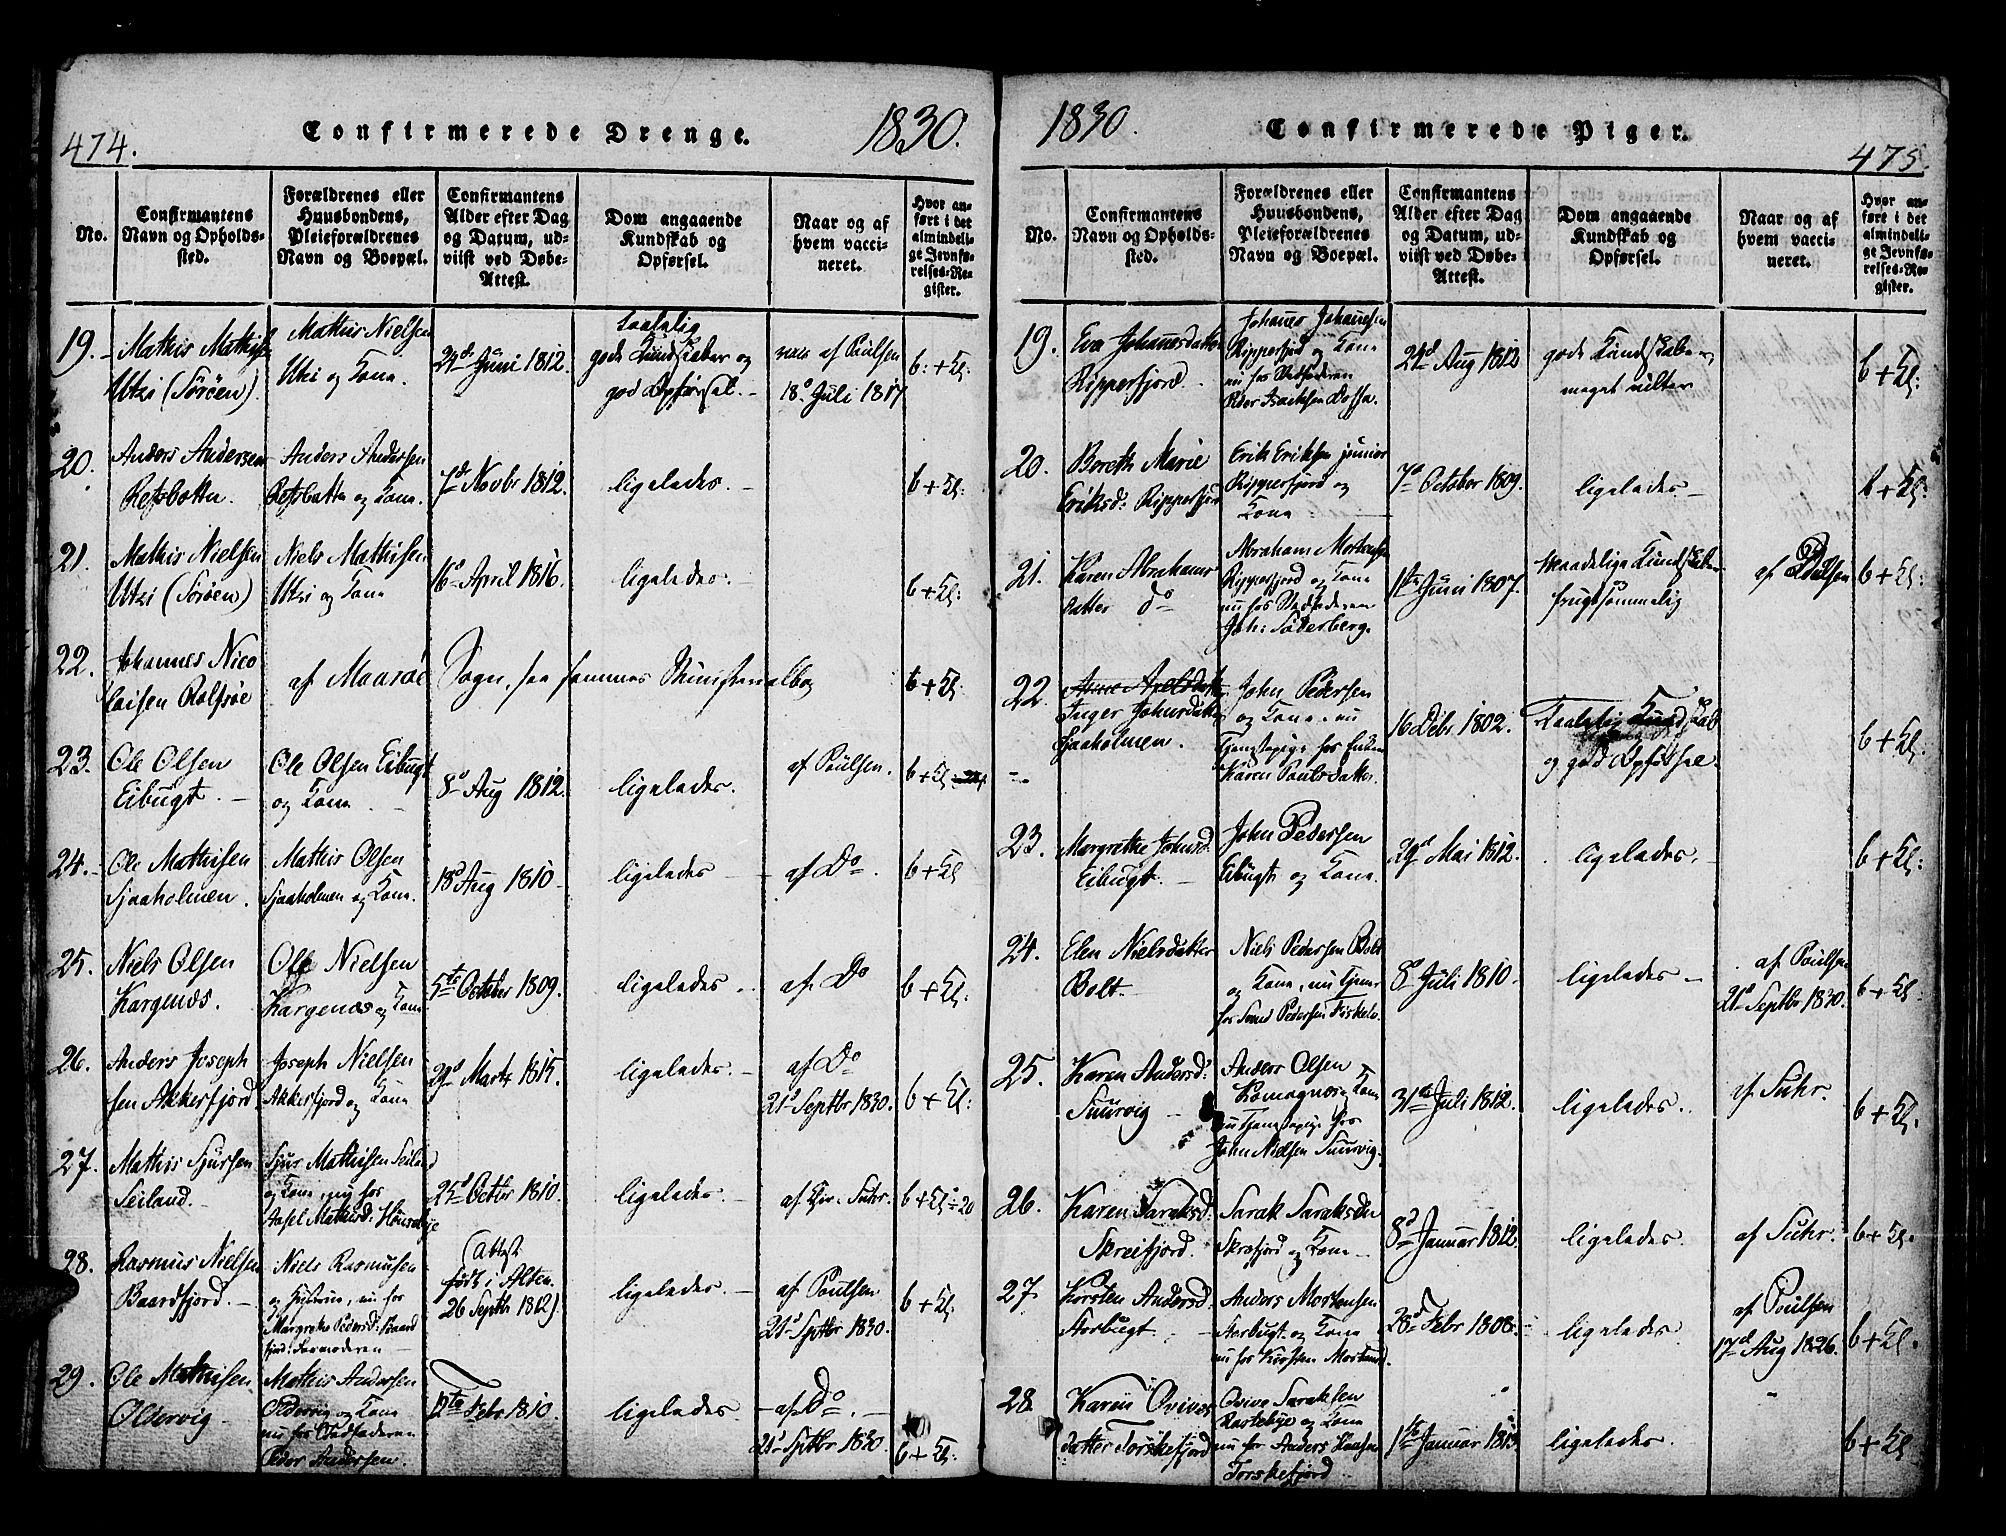 474.
Confirmerede Drenge.
1830.
No.
Confirmantens
Navn og Opholds-
sted.
Forældrenes eller
Huusbondens,
Pleieforældrenes
Navn og Boepæl.
Confirmantens
Alder efter Dag
og Datum, ud-
viist ved Døbe-
Attest.
Dom angaaende
Kundskab og
Opførsel.
Naar og af
hvem vacci-
neret.
Hvor an-
ført i det
almindeli-
ge Jevnfø-
relses-Re-
gister.
19.
Mathis Mathisen
Utzi (Sörøen).
Mathis Nielsen
Utzi og Kone.
24de Juni 1812.
taalelig
gode Kundskaber og
god Opførsel.
af Poulsen
18d Juli 1817
b: + Kl:
20.
Anders Andersen
Retsbotten.
Anders Andersen
Retsbotten og Kone.
7de Novbr 1812.
ligelades.
b + Kl:
21.
Mathis Nielsen
Utzi (Sörøen)
Niels Mathisen
Utzi og Kone
16d April 1816.
ligelades.
b + Kl:
22.
Johannes Nico
laisen Rolfsøe
af Maasøe Sogn, saa sammes Ministerialbog
b + Kl:
23.
Ole Olsen
Eibugt.
Ole Olsen Eibugt
og Kone
8d Aug 1812.
ligelades.
af Poulsen.
b + Kl:
24.
Ole Mathisen
Sjaaholmen.
Mathis Olsen
Sjaaholmen og Kone.
18d Aug 1810
ligelades
af Do.
b + Kl
25.
Niels Olsen
Kargenæs.
Ole Nielsen
Kargenæs og Kone
5te October 1809.
ligelades.
af Do
b + Kl:
26.
Anders Joseph
sen Akkerfjord.
Joseph Nielsen
Akkerfjord og Kone
29d Marts 1815.
ligelades.
af Do
21d Septbr 1830.
b + Kl:
27.
Mathis Sjursen
Seiland.
Sjur Mathisen Seiland
og Kone, nu hos
Aasel Mathisd: Hønsebye
25d Octbr 1810.
ligelades.
af Chr. Suhr.
b + Kl: 20
28.
Rasmus Nielsen
Baardfjord.
Niels Rasmusen
og Hustrue, nu hos
Margrethe Pedersd: Baard
fjord: Farmoderen
(Attest
født i Alten
26 Septbr 1812).
ligelades.
af Poulsen
21d Sptbr 1830.
b + Kl:
29.
Ole Mathisen
Oldervig
Mathis Andersen
Oldervig og Kone
nu hos Stedfaderen
Peder Andersen.
12te Febr 1810.
ligelades.
af Do.
21d Sptbr 1830.
b + Kl:
1830.
Confirmerede Piger.
475.
No.
Confirmantens
Navn og Opholds-
sted.
Forældrenes eller
Huusbondens,
Pleieforældrenes
Navn og Boepæl.
Confirmantens
Alder efter Dag
og Datum, ud-
viist ved Døbe-
Attest.
Dom angaaende
Kundskab og
Opførsel.
Naar og af
hvem vacci-
neret.
Hvor an-
ført i det
almindeli-
ge Jevnfø-
relses-Re-
gister.
19.
Eva Johanesdatter
Ripperfjord.
Johanes Johanesen
Ripperfjord og Kone
nu hos Stedfaderen
Peder Isachsen
24d Aug 1812
gode Kundskaber,
meget
b + Kl:
20.
Bereth Marie
Eriksd: Ripperfjord
Erik Eriksen junior
Ripperfjord og
Kone
7d October 1809.
ligelades
b + Kl:
21.
Karen Abrahams
datter do
Abraham Mortensen
Ripperfjord og Kone
nu hos Stedfaderen
Joh: Söderberg.
1te Juni 1807.
maadelige Kundskaber
frugtsommelig
af Poulsen
b + Kl:
22.
Inger Johnsdatter
Sjaaholmen.
John Pedersen
og Kone. nu
Tjenestepige hos Enken
Karen Poulsdatter.
16 Debr. 1802.
Taalelig Kundskab
og god Opførsel.
b + Kl:
23.
Margrethe Johnsd:
Eibugt.
John Pedersen
Eibugt og Kone.
29d Mai 1812.
ligelades.
b + Kl:
24.
Elen Nielsdatter
Bolt.
Niels Pedersen Bolt
og Kone, nu tjener
hos Svend Pedersen
8d Juli 1810.
ligelades
af Poulsen
21d Septbr 1830.
b + Kl:
25.
Karen Andersd:
Suurvig
Anders Olsen
Komagnæs og Kone
nu Tjenestepige hos
John Nielsen Suurvig.
31te Juli 1812.
ligelades.
af Suhr.
b + Kl.
26.
Karen Saraksd:
Skreifjord.
Sarak Saraksen
Skreifjord og Kone
8d Januar 1812.
ligelades.
af Suhr.
b + Kl.
27.
Kirsten Andersd:
Storbugt.
Anders Mortensen
Storbugt og Kone
nu hos Kirsten Mortensd
28d Febr 1808.
ligelades
af Poulsen
17d Aug 1826.
b + Kl.
28.
Karen Ovives
datter Torskefjord
Ovive Saraksen
Rastebye og Kone
nu hos Anders Hansen
Torskefjord
1te Januar 1813
ligelades.
b + Kl